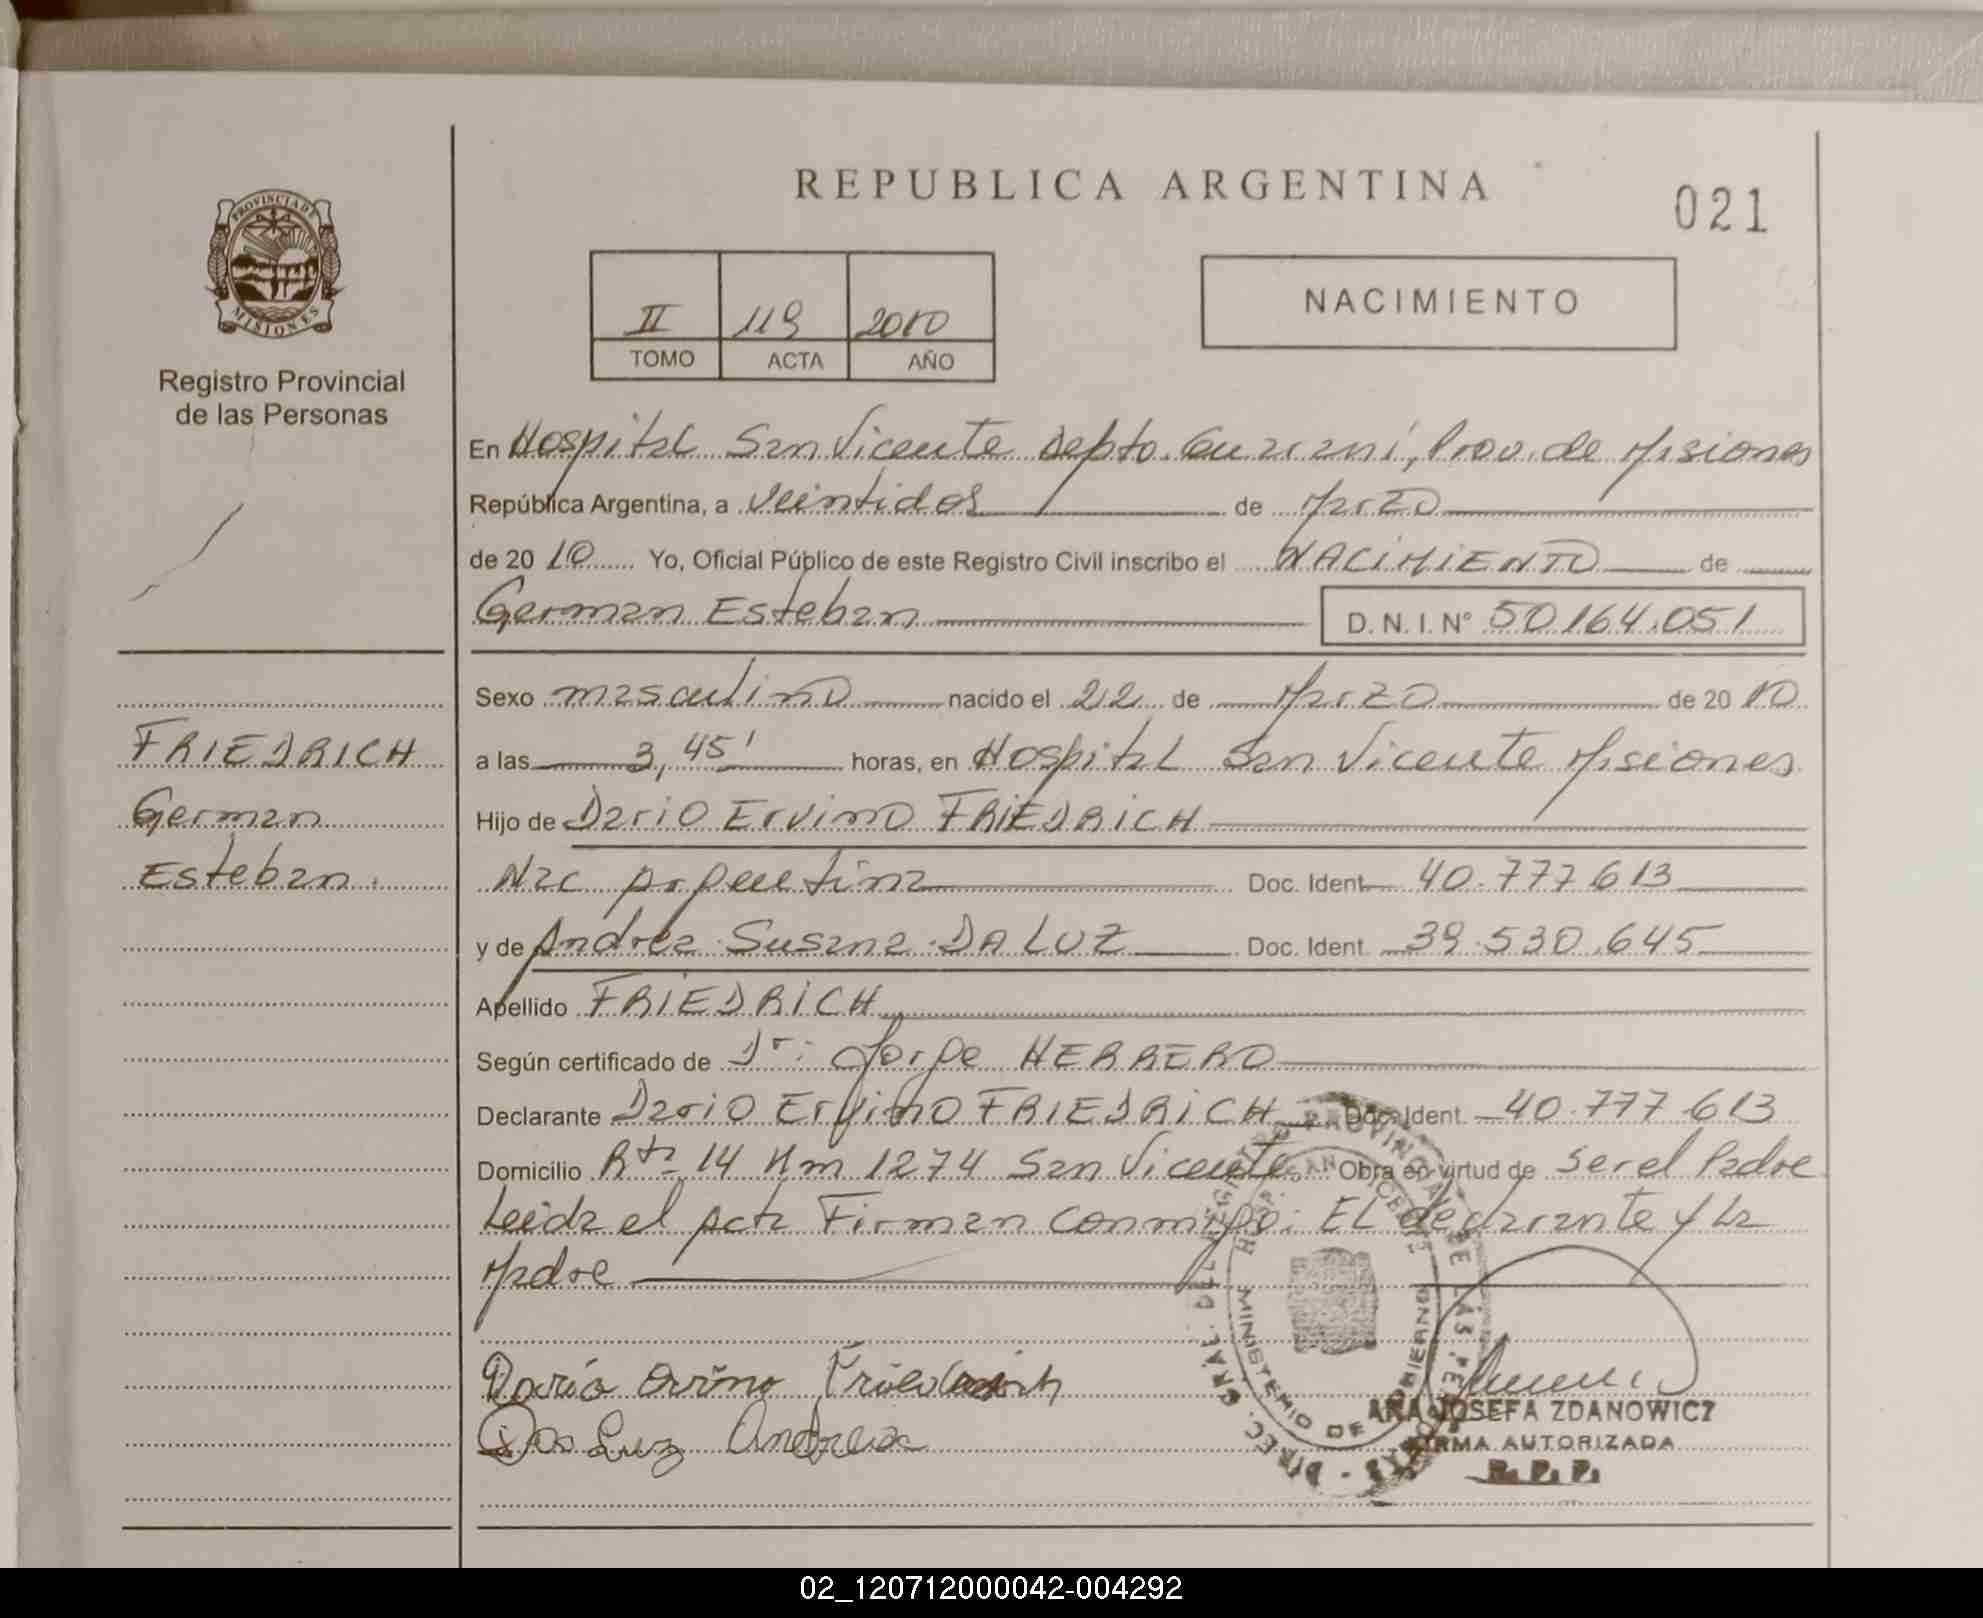 REPUBLICA ARGENTINA
021
PROVINCIA DE
MISIONES
Registro Provincial
de las Personas
II 119 2010
TOMO ACTA AÑO
NACIMIENTO
En Hospital San Vicente Depto. Guarani, Prov. de Misiones
República Argentina, a Veintidos de Marzo
de 2010 Yo, Oficial Público de este Registro Civil inscribo el NACIMIENTO de
German Esteban D.N.I. N° 50.164.051
Sexo masculino nacido el 22 de Marzo de 2010
FRIEDRICH
German
Esteban.
a las 3,45' horas, en Hospital San Vicente Misiones
Hijo de Dario Ervino FRIEDRICH
Nac Argentina Doc. Ident. 40.777.613
y de Andrea Susana DA LUZ Doc. Ident. 39.530.645
Apellido FRIEDRICH
Según certificado de Dr: Jorge HERRERO
Declarante Dario Ervino FRIEDRICH Doc. Ident. 40.777.613
Domicilio Rta 14 Km 1274 San Vicente Obra en virtud de ser el Padre
Leida el Acta Firman conmigo: EL declarante y La
Madre
Dario Ervino Friedrich
Das Luz Andrea
MINISTERIO DE GOBIERNO
ANA JOSEFA ZDANOWICZ
FIRMA AUTORIZADA
R. P. P.
02_120712000042-004292